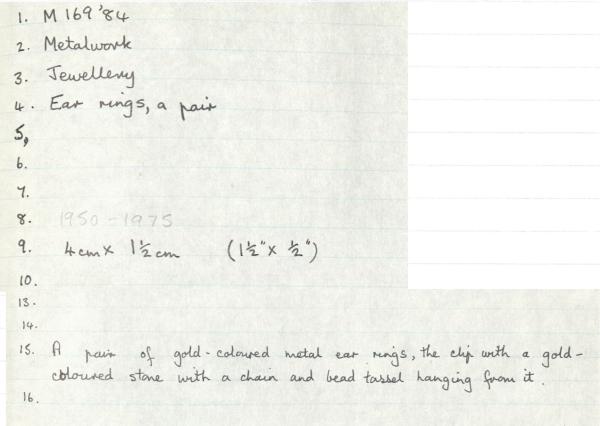 1. M 169 '84
2. Metalwork
3. Jewellery
4. Ear rings, a pair
5,
6.
7.
8. 1950-1975
9. 4cm x 1½ cm (1½" x ½")
10.
13.
14.
15. A pair of gold-coloured metal ear rings, the clip with a gold-
coloured stone with a chain and bead tassel hanging from it.
16.